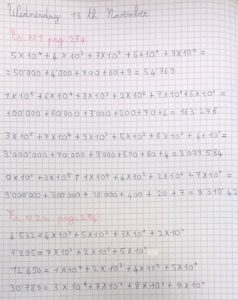 Wednesday 13 th November
Es. N°1 pag. 284
5 × 10⁴ + 4 × 10³ + 7 × 10² + 6 × 10¹ + 9 × 10⁰ =
= 50'000 + 4'000 + 700 + 60 + 9 = 54'769
1 × 10⁵ + 6 × 10⁴ + 3 × 10³ + 2 × 10² + 7 × 10¹ + 6 × 10⁰ =
100'000 + 60'000 + 3'000 + 200 + 70 + 6 = 163'276
3 × 10⁶ + 7 × 10⁴ + 9 × 10³ + 5 × 10² + 8 × 10¹ + 4 × 10⁰ =
3'000'000 + 70'000 + 9'000 + 500 + 80 + 4 = 3'079'584
9 × 10⁶ + 3 × 10⁵ + 1 × 10⁴ + 4 × 10² + 2 × 10¹ + 7 × 10⁰ =
9'000'000 + 300'000 + 10'000 + 400 + 20 + 7 = 9'310'42
Es. N°2 pag. 284
4'532 = 4 × 10³ + 5 × 10² + 3 × 10¹ + 2 × 10⁰
7'205 = 7 × 10³ + 2 × 10² + 5 × 10⁰
12'450 = 1 × 10⁴ + 2 × 10³ + 4 × 10² + 5 × 10¹
30'789 = 3 × 10⁴ + 7 × 10² + 8 × 10¹ + 9 × 10⁰